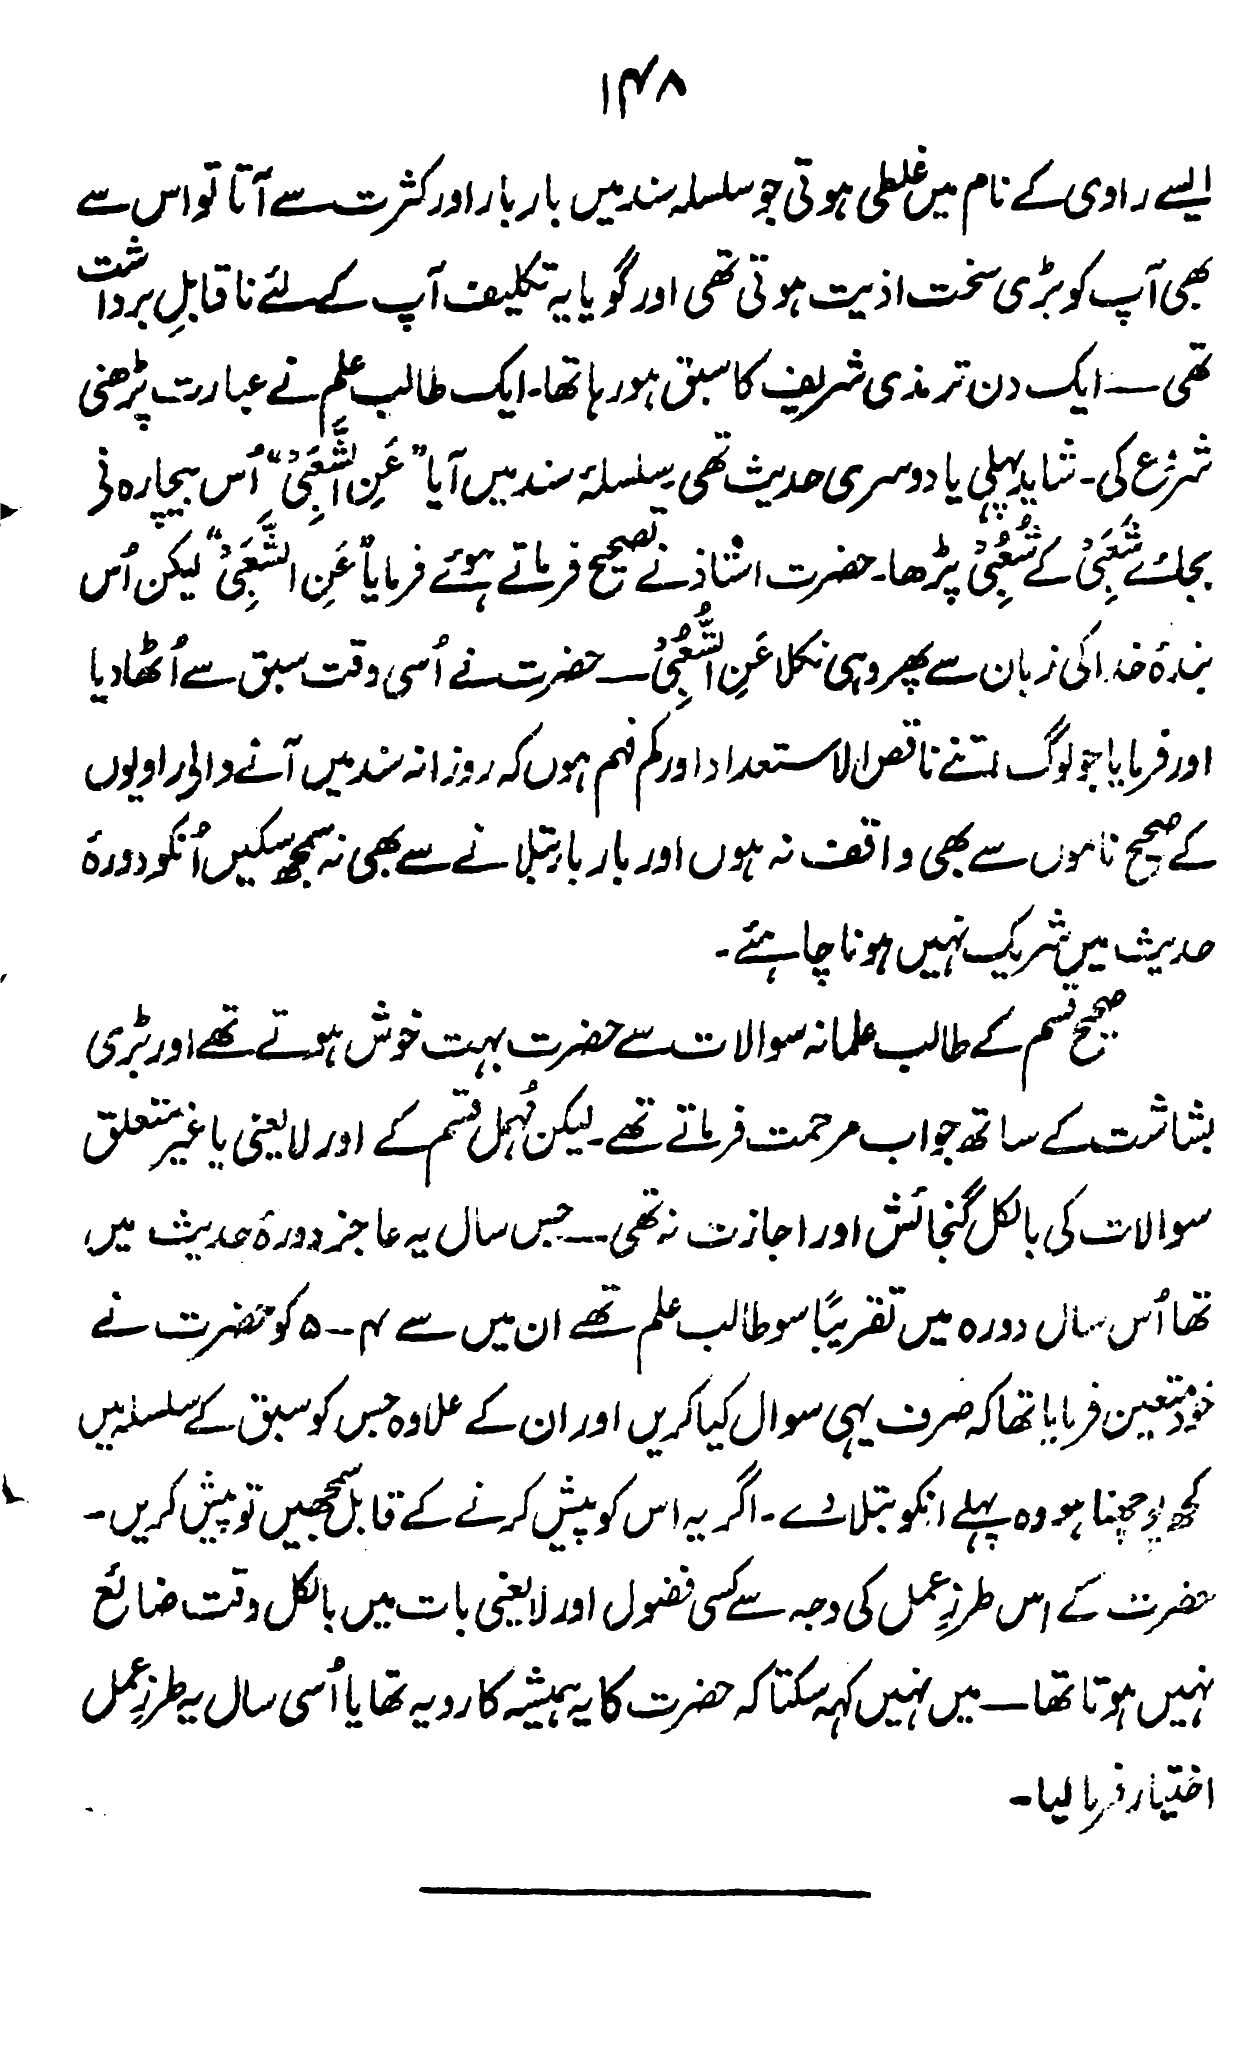 ۱۴۸
ایسے راوی کے نام میں غلطی ہوتی جو سلسلہ سند میں بار بار اور کثرت سے آتا تو اس سے
بھی آپ کو بڑی سخت اذیت ہوتی تھی اور گویا یہ تکلیف آپ کے لئے ناقابلِ برداشت
تھی ــ ایک دن ترمذی شریف کا سبق ہو رہا تھا۔ ایک طالب علم نے عبارت پڑھنی
شروع کی۔ شاید پہلی یا دوسری حدیث تھی سلسلۂ سند میں آیا ”عَنِ الشَّعَبِیْ“ اُس بیچارہ نی
بجائے شَعَبِیْ کے شُعُبِیْ پڑھا۔ حضرت استاذ نے تصحیح فرماتے ہوئے فرمایا ”عَنِ الشَّعَبِیْ“ لیکن اُس
بندۂ خدا کی زبان سے پھر وہی نکلا عَنِ الشُّعُبِیْ ــ حضرت نے اُسی وقت سبق سے اُٹھا دیا
اور فرمایا جو لوگ اتنے ناقص الاستعداد اور کم فہم ہوں کہ روزانہ سند میں آنے والی راویوں
کے صحیح ناموں سے بھی واقف نہ ہوں اور بار بار بتلانے سے بھی نہ سمجھ سکیں اُنکو دورۂ
حدیث میں شریک نہیں ہونا چاہئے۔
صحیح قسم کے طالب علمانہ سوالات سے حضرت بہت خوش ہوتے تھے اور بڑی
بشاشت کے ساتھ جواب مرحمت فرماتے تھے۔ لیکن مُہمل قسم کے اور لایعنی یا غیر متعلق
سوالات کی بالکل گنجائش اور اجازت نہ تھی ــ جس سال یہ عاجز دورۂ حدیث میں
تھا اُس سال دورہ میں تقریبًا سو طالب علم تھے ان میں سے ۴ــ۵ کو حضرت نے
خود متعین فرمایا تھا کہ صرف یہی سوال کیا کریں اور ان کے علاوہ جس کو سبق کے سلسلہ میں
کچھ پوچھنا ہو وہ پہلے انکو بتلا دے۔ اگر یہ اس کو پیش کرنے کے قابل سمجھیں تو پیش کریں۔
حضرت کے اس طرزِ عمل کی وجہ سے کسی فضول اور لایعنی بات میں بالکل وقت ضائع
نہیں ہوتا تھا ــ میں نہیں کہہ سکتا کہ حضرت کا یہ ہمیشہ کا رویہ تھا یا اُسی سال یہ طرزِ عمل
اختیار فرما لیا۔